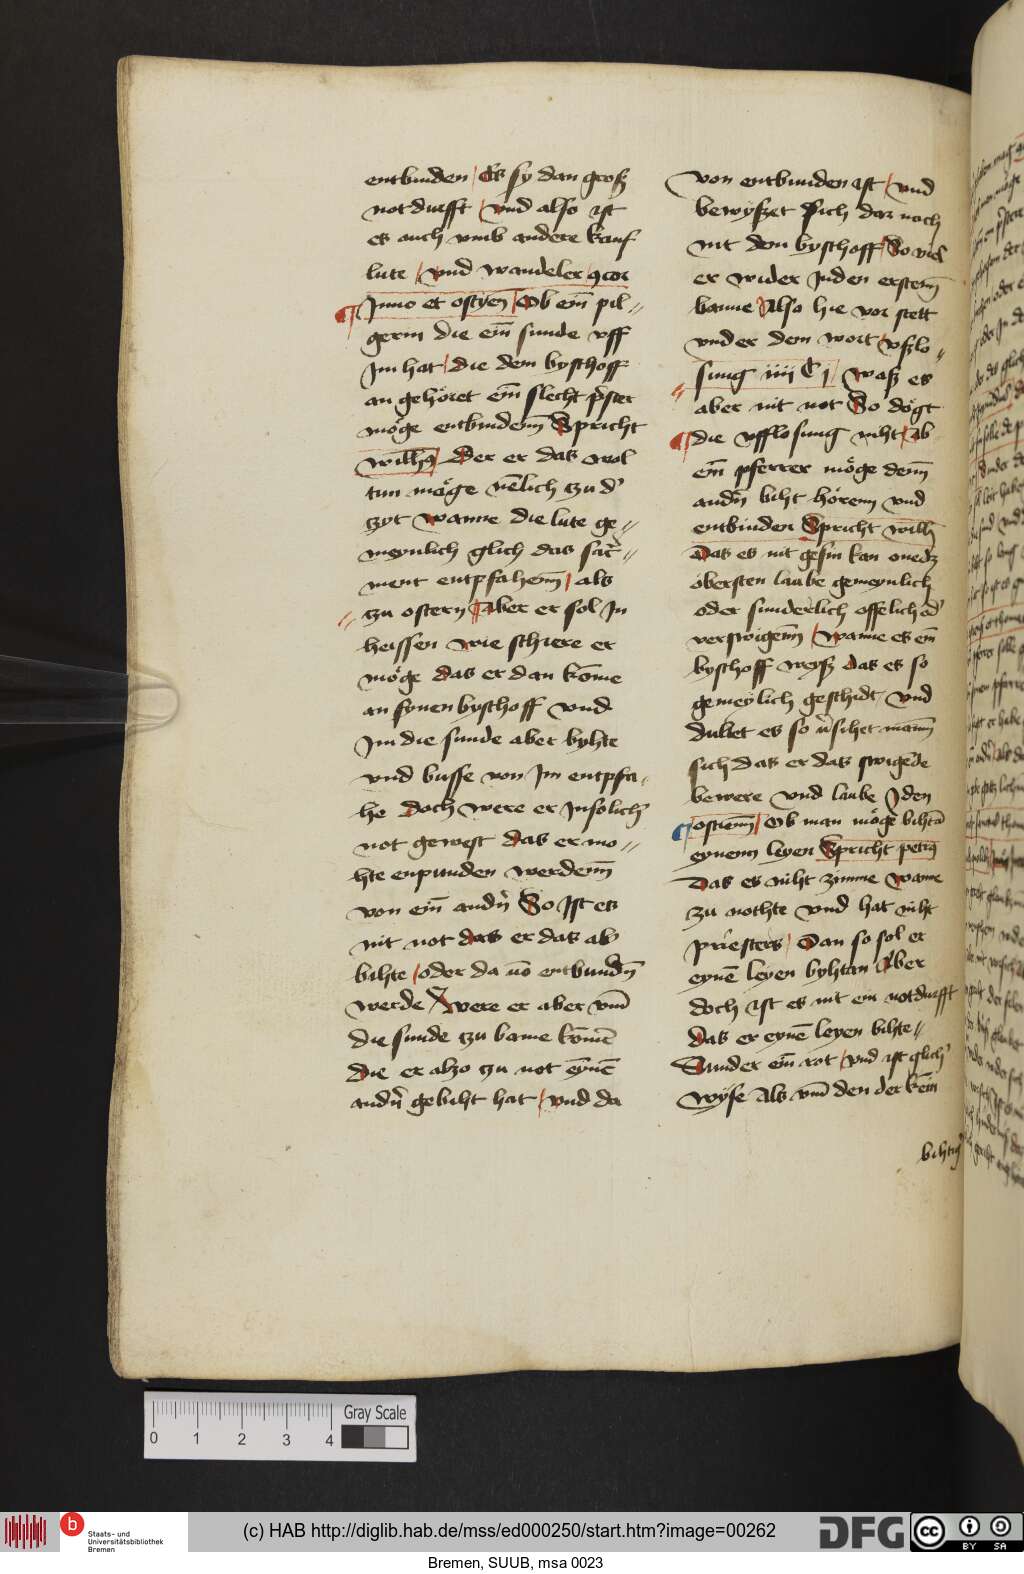 entbinden / Es sy dan groß
notdurfft / vnd also ist
es auch vmb andere kauf
lute / vnd wandeler
Jnno et ostyen̄ / Ob ein̄ pil=
gerin die ein̄ sunde vff
Jm hat / die dem byschoff
an gehöret ein̄ slecht p̄ster
möge entbindenn̄ Spricht
wilh̄9 / Der er das wol
tun möge nēlich tzu d'
tzyt wanne die lute ge=
meynlich glich das sac̄=
ment entpfahenn̄ / als
tzu ostern / Aber er sol jn
heissen wie schiere er
möge das er dan kōme
an synen byschoff vnd
Jm die sunde aber byhte
vnd busse von jm entpfa=
he Doch were er jn solich'
not gewest das er mo=
hte enpunden werdenn̄
von ein̄ andn̄ So Jst es
nit not das er das ab'
bihte / oder da vō entbundn̄
werde / Were er aber vm̄
die sunde tzu banne kōmē
die er alzo tzu not eynē
andn̄ gebiht hat / vnd da
von entbunden ist / vnd
bewyszet sich dar noch
nit den byschoff / So viel
er wider jn den erstenn̄
banne / Also hie vor stett
vnder dem wort / vszlo=
sung iiii C j / Waß es
aber nit not So dögt
die vfflosung niht / Ob
ein̄ pferrer möge denn̄
andn̄ biht hörenn vnd
entbinden Spricht wilh̄
Das es nit gesin kan onedz
öbersten laube gemeynlich
oder sunderlich offelich od'
verswigenn̄ / Wanne es ein̄
byschoff weyß das es so
gemeylich geschidt vnd
dultet es so v̄sihet mann̄
sich das er das swigēde
bewere vnd laube jden
ostienn̄ / Ob man möge bihtā
eynenn leyen Spricht petr9
Das es niht zimme Wanne
zu nothte vnd hat niht
priesters / Dan so sol er
eynē leyen byhtan Aber
doch ist es nit ein notdurfft
Das er eynē leyen bihte=
Sunder ein̄ rot / vnd ist glich'
wyse Als vm̄ den der kein̄
bihtig'
Gray Scale
0 1 2 3 4
Staats- und
Universitätsbibliothek
Bremen
(c) HAB http://diglib.hab.de/mss/ed000250/start.htm?image=00262
DFG
cc
BY SA
Bremen, SUUB, msa 0023